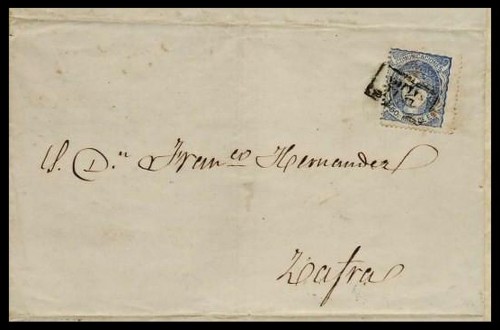 S. D.n Franco Hernandez
Zafra